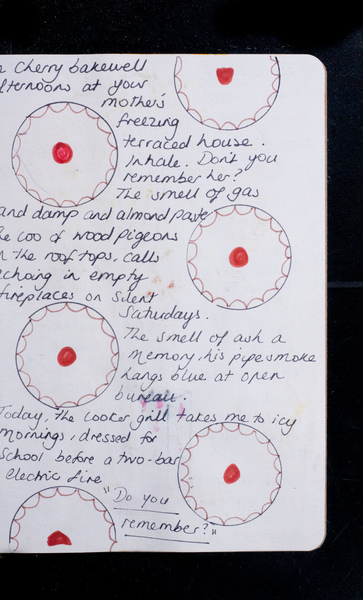 Cherry bakewell
afternoons at your
mother's
freezing
terraced house.
Inhale. Don't you
remember her?
The smell of gas
and damp and almond paste
the coo of wood pigeons
on the rooftops, calls
echoing in empty
fireplaces on silent
Saturdays.
The smell of ash a
memory, his pipesmoke
hangs blue at open
bureau.
Today, the cooker grill takes me to icy
mornings, dressed for
school before a two-bar
electric fire
"Do you
remember?"